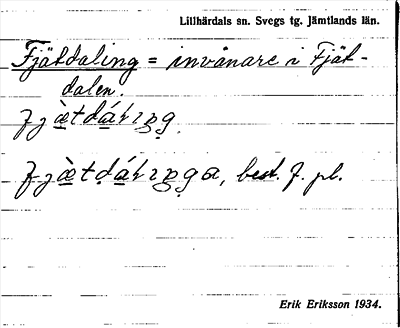 Lillhärdals sn. Svegs tg. Jämtlands län.
Fjätdaling = invånare i Fjät-
dalen.
best. f. pl.
Erik Eriksson 1934.